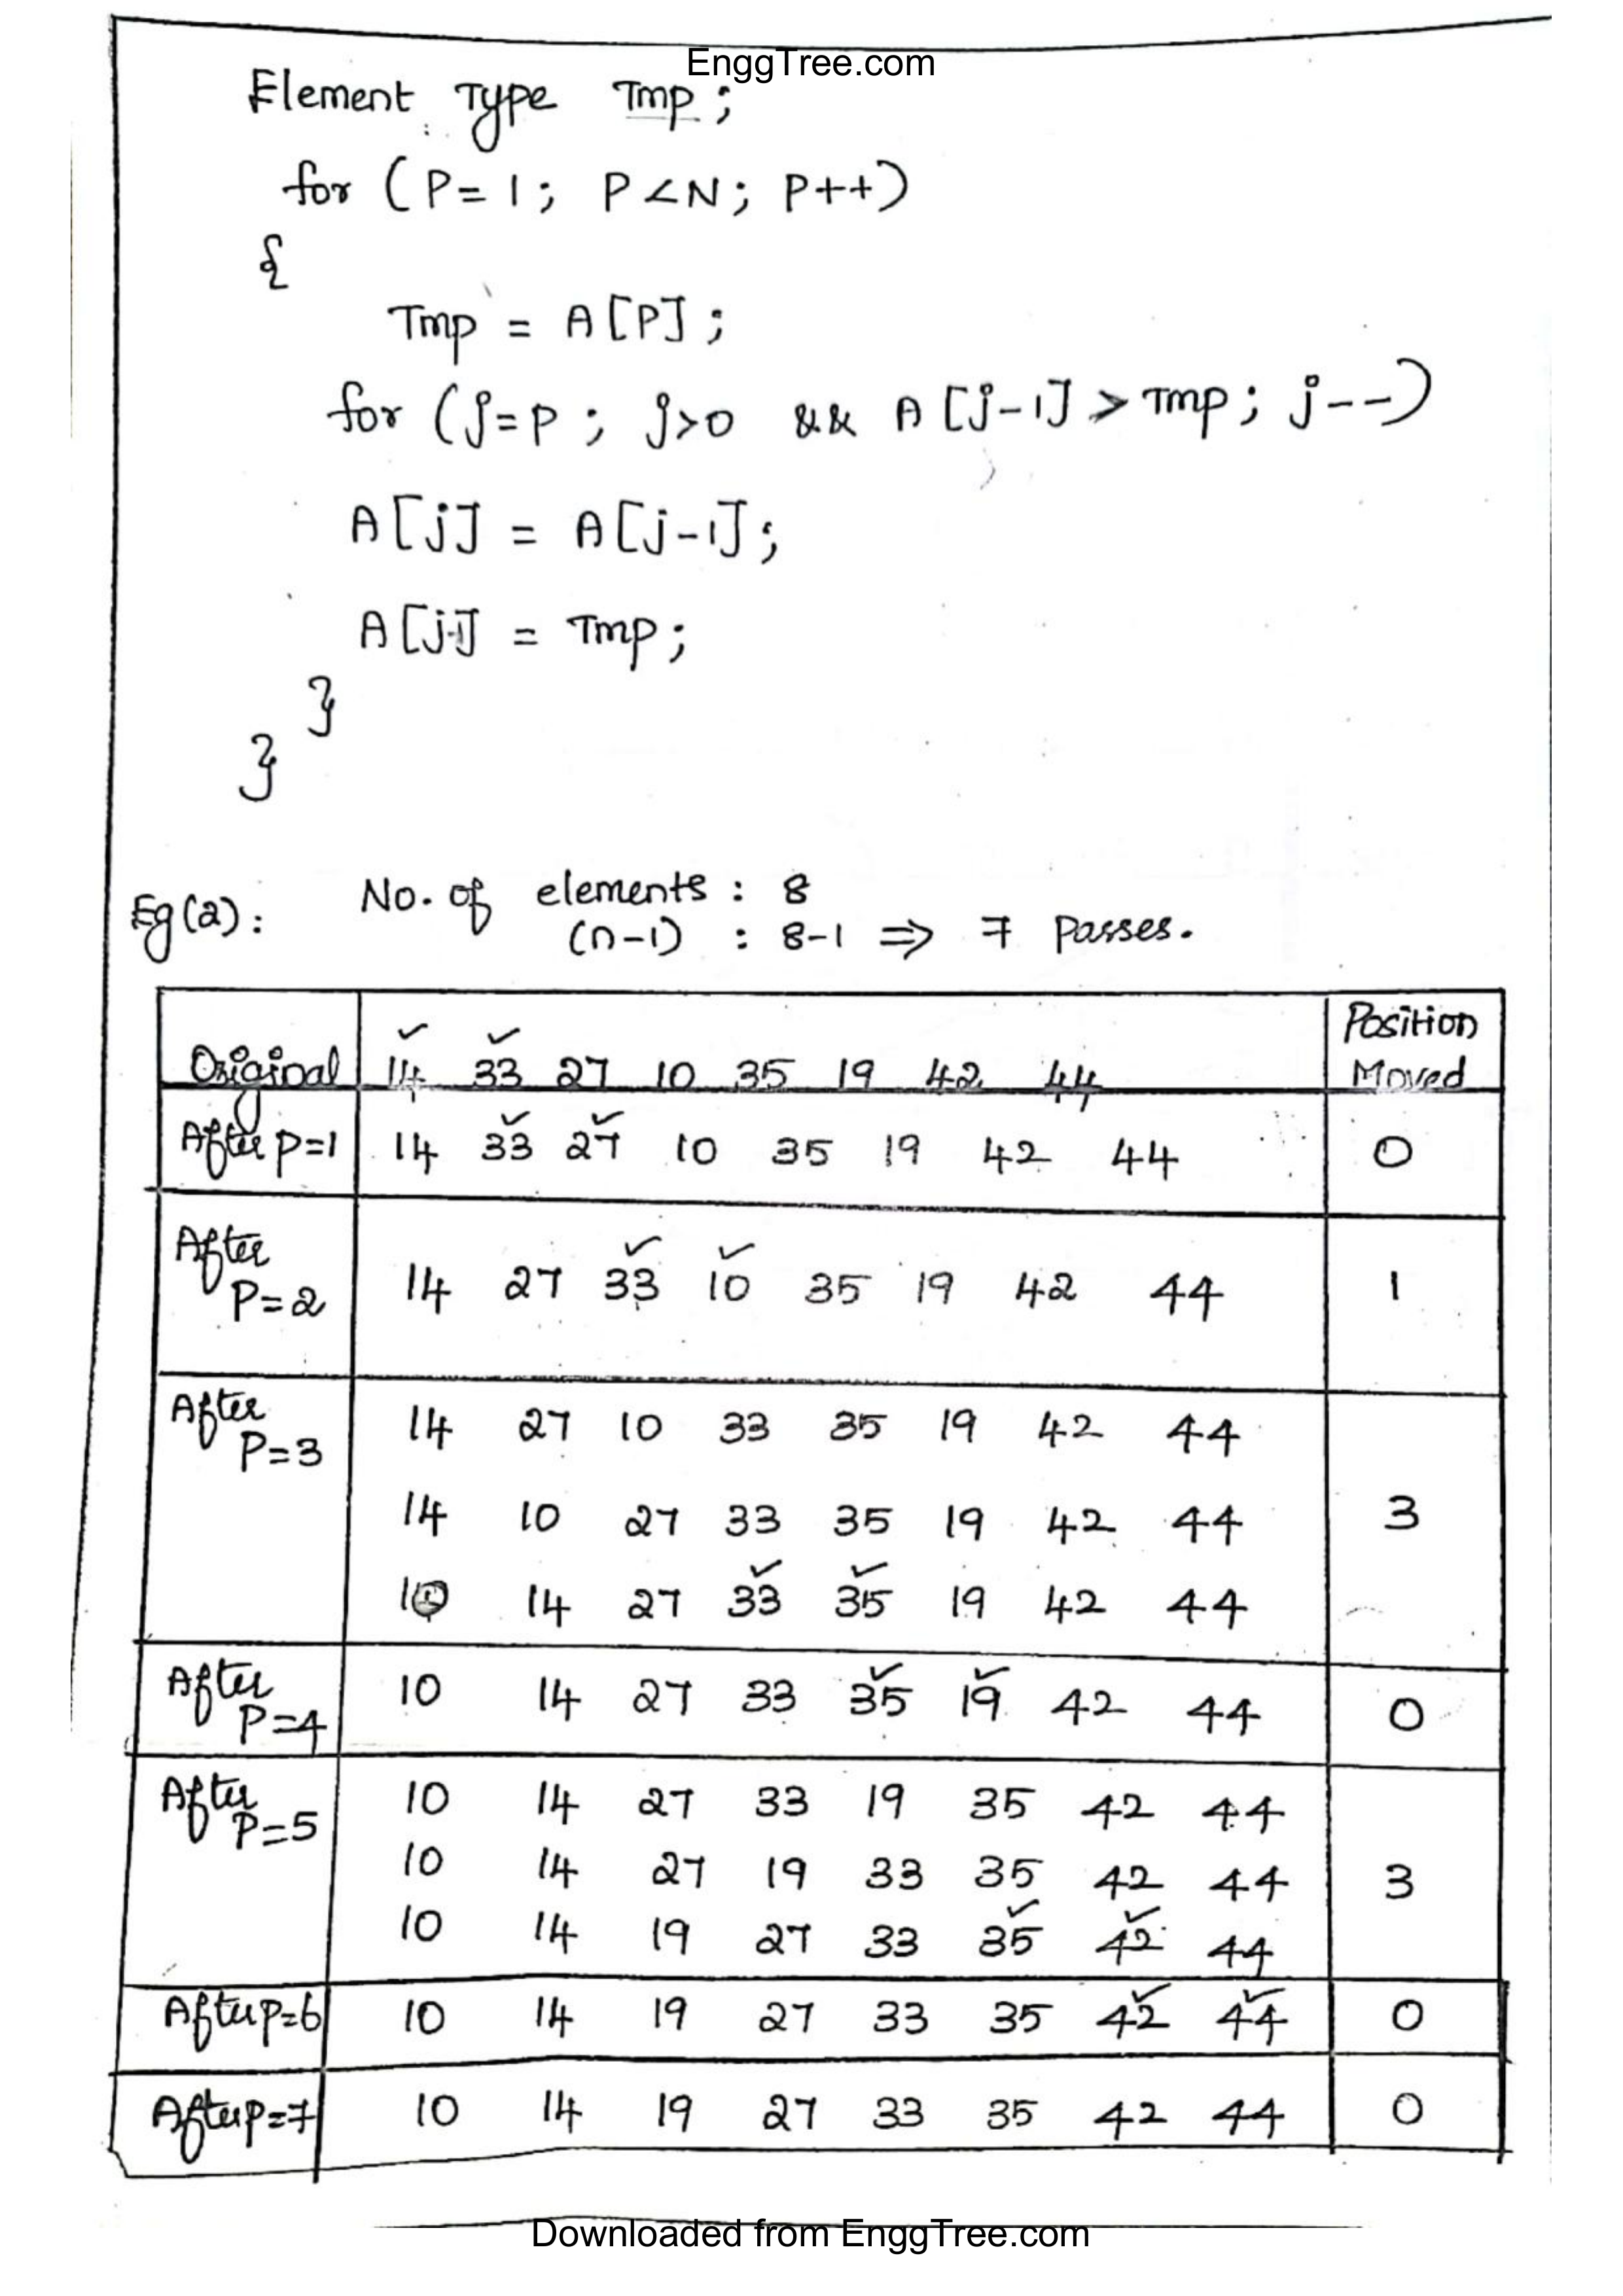 EnggTree.com
Element Type Tmp;
for (P=1; P<N; P++)
{
Tmp = A[P];
for (j=P; j>0 && A[j-1] > Tmp; j--)
A[j] = A[j-1];
A[j-1] = Tmp;
}
}
Eg(2): No. of elements : 8
(n-1) : 8-1 ⇒ 7 Passes.
Position
Original 14 33 27 10 35 19 42 44 Moved
After P=1 14 33 27 10 35 19 42 44 0
After
P=2 14 27 33 10 35 19 42 44 1
After 14 27 10 33 35 19 42 44
P=3
14 10 27 33 35 19 42 44 3
10 14 27 33 35 19 42 44
After 10 14 27 33 35 19 42 44 0
P=4
After 10 14 27 33 19 35 42 44
P=5
10 14 27 19 33 35 42 44 3
10 14 19 27 33 35 42 44
After P=6 10 14 19 27 33 35 42 44 0
After P=7 10 14 19 27 33 35 42 44 0
Downloaded from EnggTree.com